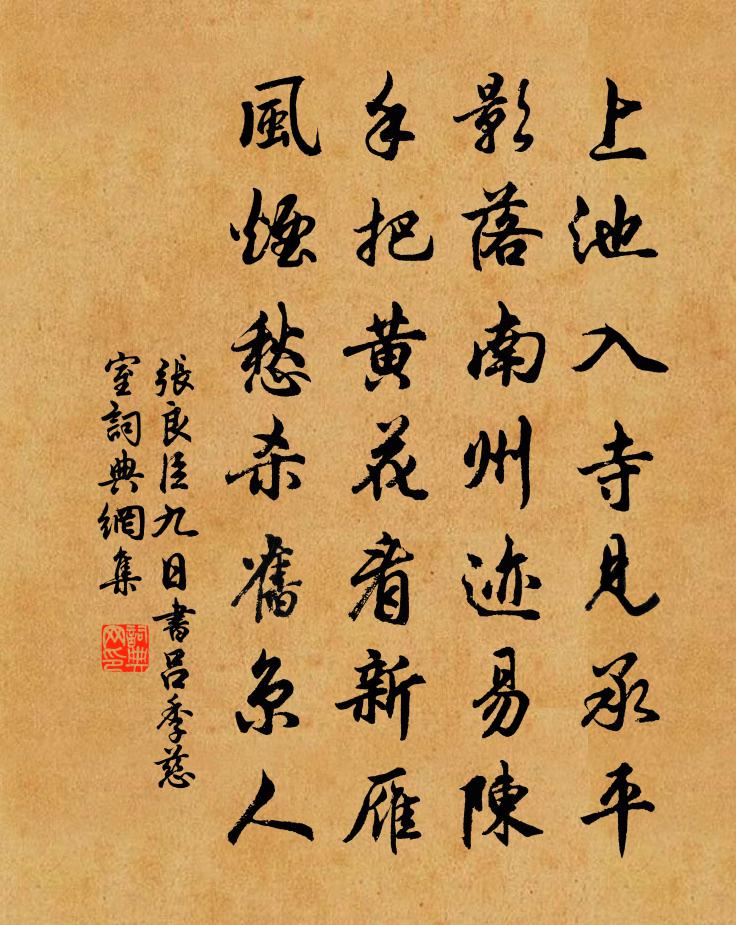 上池入寺見承平
影落南州迹易陳
手把黄花看新雁
風煙愁杀舊京人
張良臣九日書呂季慈
室詞典網集
詞典网印